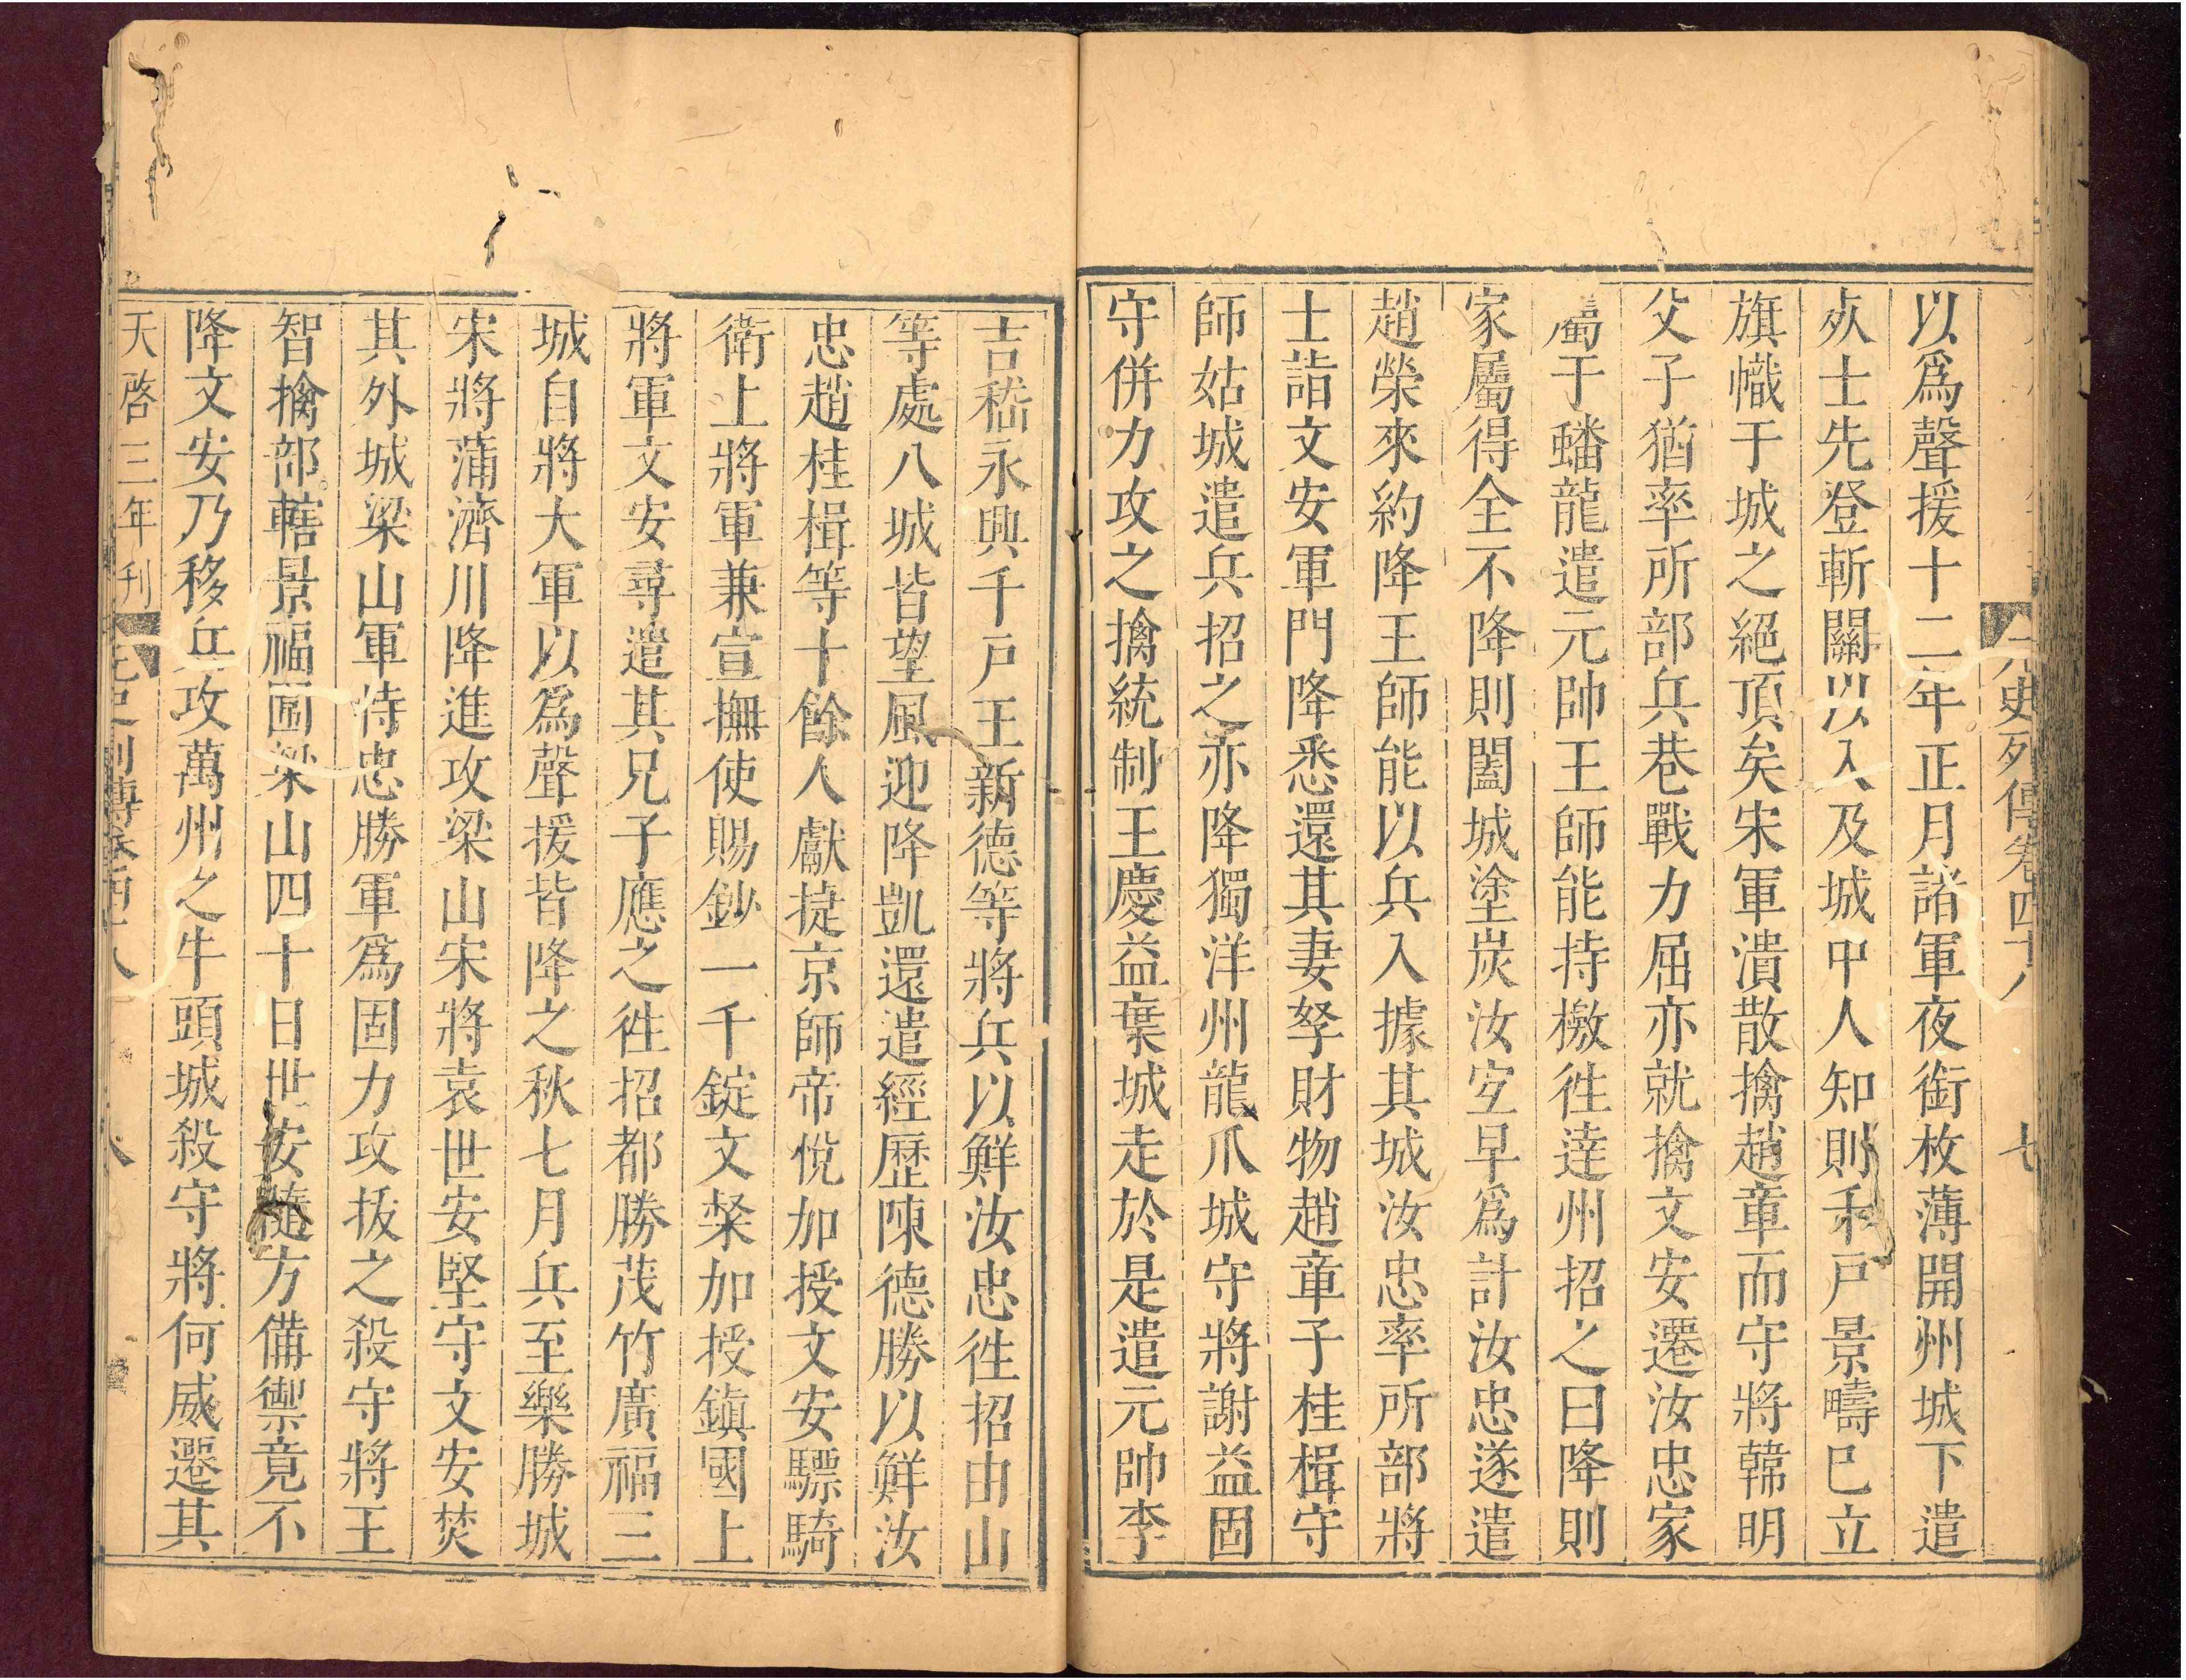 元史列傳卷四十八 七
以爲聲援十二年正月諸軍夜銜枚薄開州城下遣
𣦸士先登斬關以入及城中人知則千戸景疇巳立
旗幟于城之絕頂矣宋軍潰散擒趙章而守將韓明
父子猶率所部兵巷戰力屈亦就擒文安遷汝忠家
屬于蟠龍遣元帥王師能持檄徃逹州招之曰降則
家屬得全不降則闔城塗炭汝宐早爲計汝忠遂遣
趙榮來約降王師能以兵入據其城汝忠率所部將
士詣文安軍門降悉還其妻孥財物趙章子桂楫守
師姑城遣兵招之亦降獨洋州龍爪城守將謝益固
守併力攻之擒統制王慶益棄城走於是遣元帥李
吉嵇永興千戸王新德等將兵以鮮汝忠徃招由山
等處八城皆望風迎降凱還遣經歷陳德勝以鮮汝
忠趙桂楫等十餘人獻捷京師帝悅加授文安驃騎
衛上將軍兼宣撫使賜鈔一千錠文桀加授鎮國上
將軍文安尋遣其兄子應之徃招都勝茂竹廣福三
城自將大軍以爲聲援皆降之秋七月兵至樂勝城
宋將蒲濟川降進攻梁山宋將袁世安堅守文安焚
其外城梁山軍恃忠勝軍爲固力攻拔之殺守將王
智擒部轄景福圍梁山四十日世安隨方備禦竟不
降文安乃移兵攻萬州之牛頭城殺守將何威遷其
天啓三年刊 元史列傳卷四十八 八